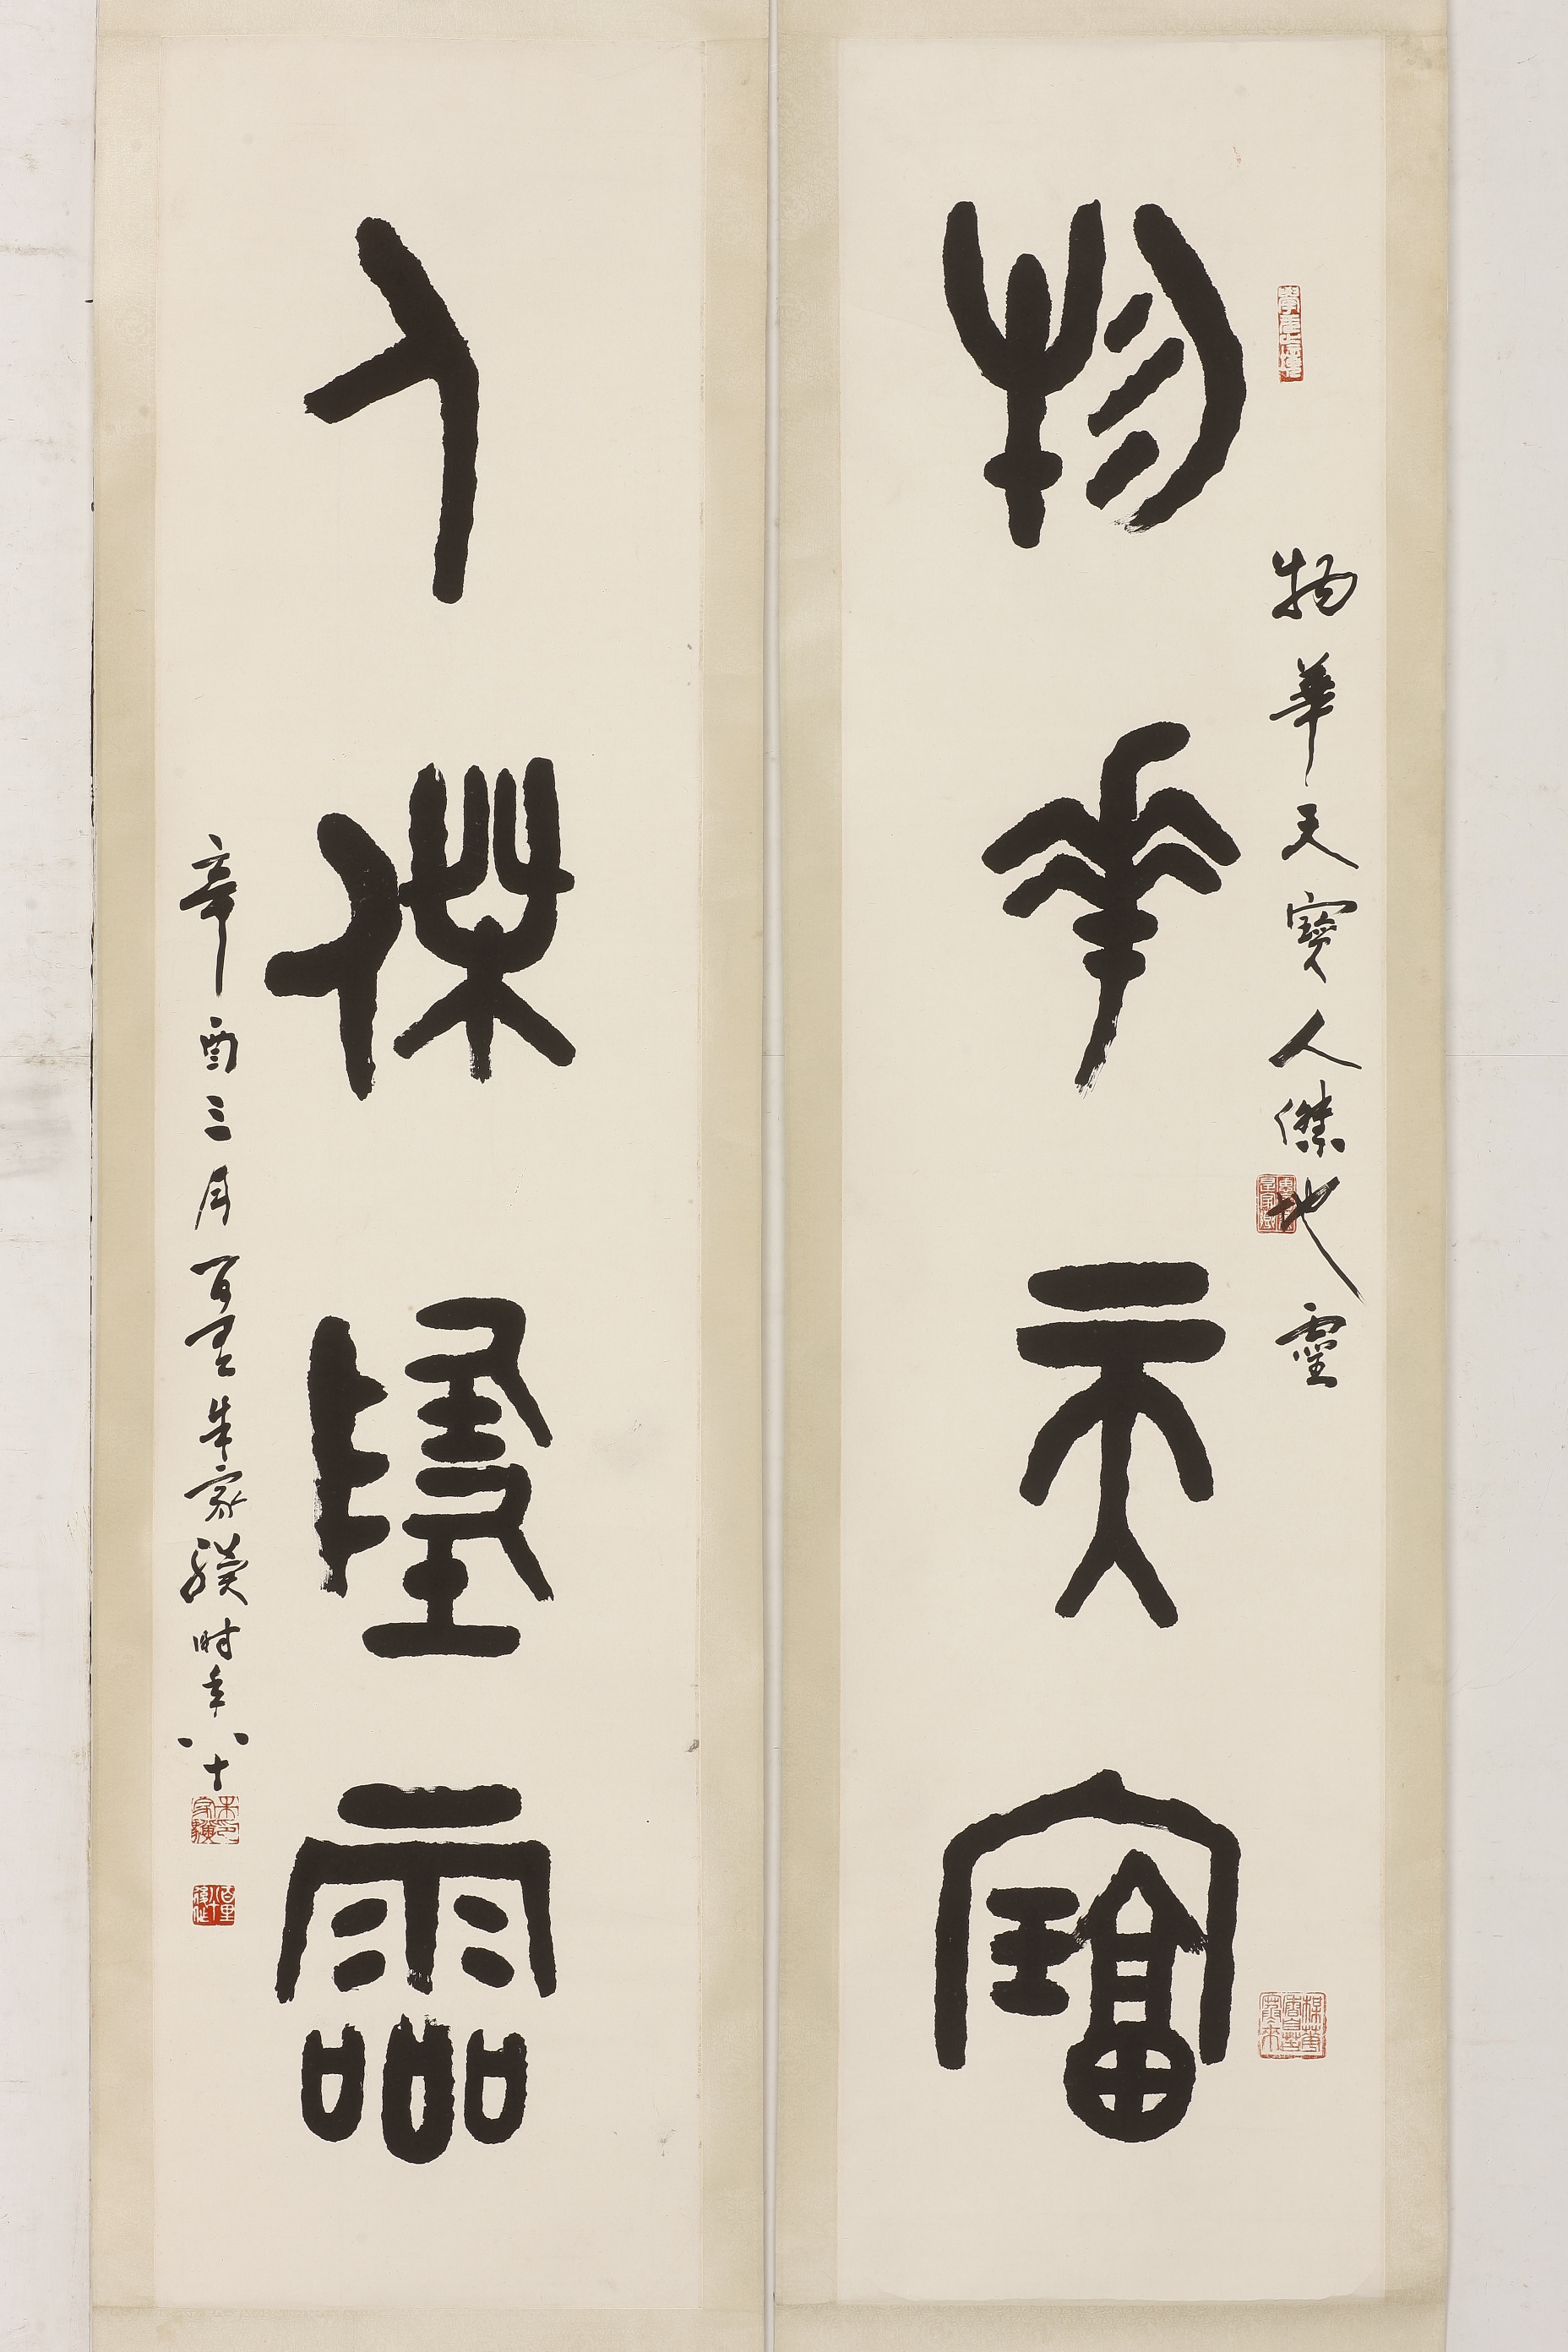 物華天寶
物華天寶人傑地靈
人傑地靈
辛酉三月百里朱家驥時年八十